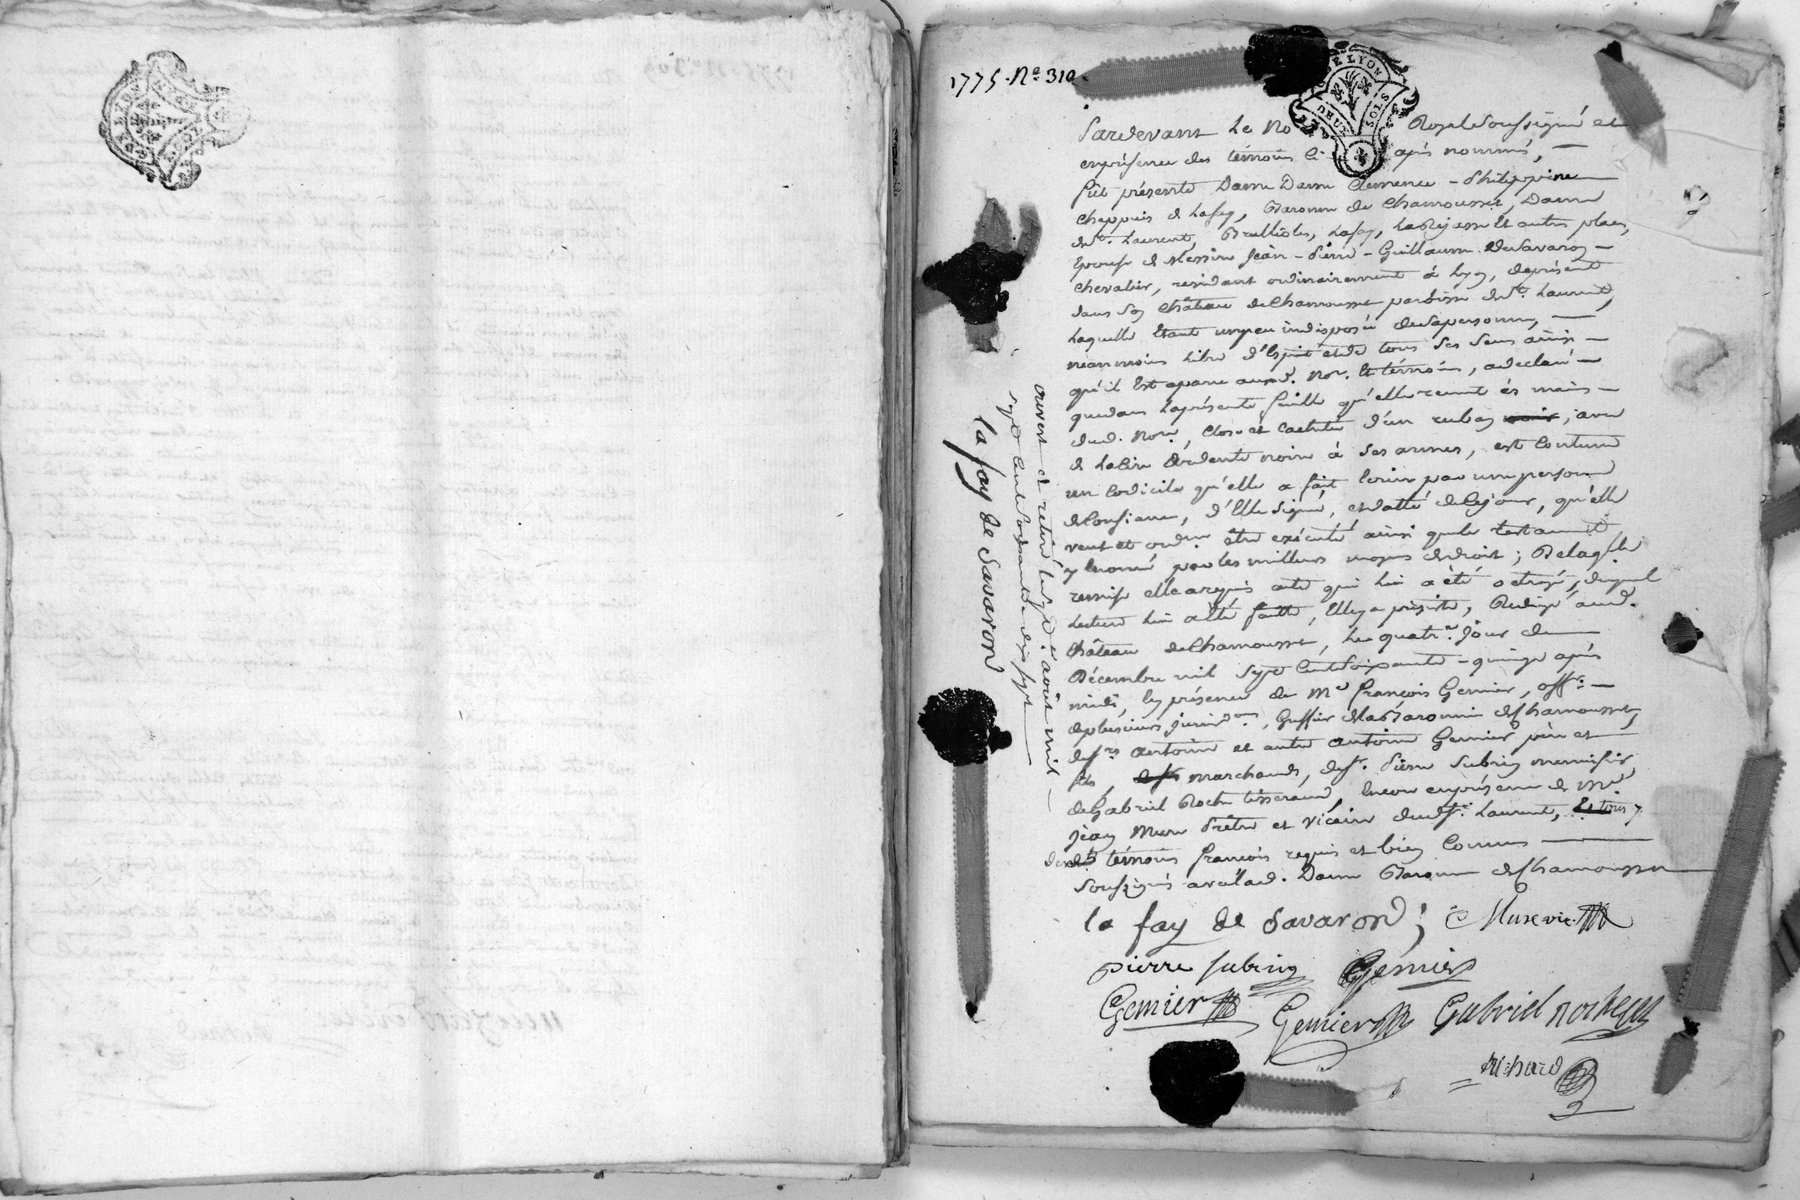 1775. No. 310.
DE LYON
DEUX SOLS
Pardevant Le No Royal Soussigné et
en présence des témoins Ci après nommés, —
fût présente Dame Dame Clemence - Philippine
Chappuis de Lafay, Baronne de Chamousset, Dame
de St. Laurent, Brullioles, Lafay, et autres places,
Epouse de Messire Jean - Pierre - Guillaume De Savaron —
Chevalier, residant ordinairement à Lyon, de présent
dans Son Château de Chamousset paroisse de St. Laurent,
Laquelle Etant un peu indisposée de sa personne, —
neanmoins Libre d'Esprit et de tous Ses Sens ainsi —
qu'il Est aparu aud. Nore. Et témoins, a declaré —
que dans La présente feuille qu'elle remet ès mains —
dud. Nore, Close et Cachetée d'un ruban noir, avec
de La Cire ardente noire à Ses armes, est Contenu
un Codicile qu'elle a fait Ecrire par une personne
de Confiance, d'Elle Signé, et datté de Ce jour, qu'elle
veut et ordonne être exécuté ainsi que le testament
y Enoncé par les meilleurs moyens de droit; De laqlle
remise elle a requis acte qui Lui a été octroyé, duquel
Lecture Lui a été faitte, Elle y a persisté, Redigé aud.
Château de Chamousset, Le quatre. Jour de —
Décembre mil Sept Cent Soixante - quinze après
midi, En présence de Me François Gemier, offr. —
de plusieurs Juridons, Greffier de la Baronnie de Chamousset,
de Srs antoine et autre antoine Gemier père et —
fils, marchands, de Sr. Pierre Subrin menuisier,
de Gabriel Roche tisserand, Encore en présence de Mre.
Jean Mure Prêtre et Vicaire dud. St. Laurent,
témoins francois requis et bien Connus —
Soussignés avec Lad. Dame Baronne de Chamousset
la fay de Savaron; Mure vic.
pierre Subrin Gemier
Gemier Gemier Gabriel roche
Richard
ouvert et retiré le Sept août mil —
Sept Cent Soixante dix sept —
la fay de Savaron